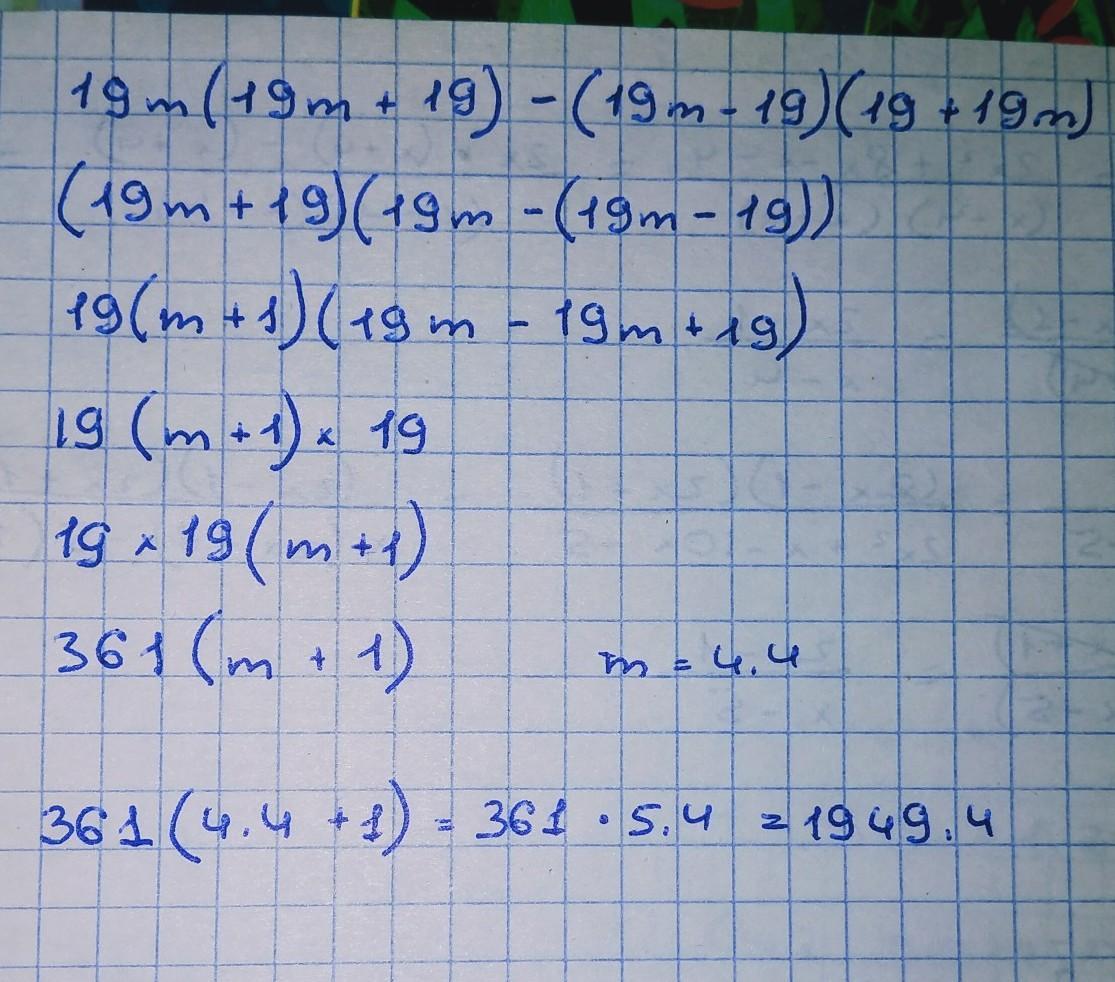 19m(19m + 19) - (19m - 19)(19 + 19m)
(19m + 19)(19m - (19m - 19))
19(m + 1)(19m - 19m + 19)
19(m + 1) × 19
19 × 19(m + 1)
361(m + 1) m = 4.4
361(4.4 + 1) = 361 · 5.4 = 1949.4